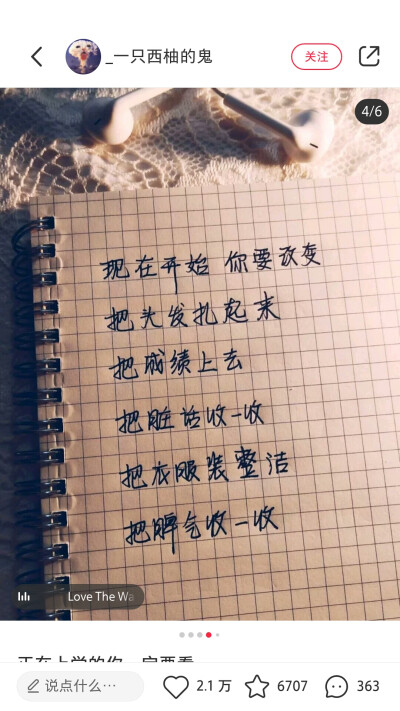 _一只西柚的鬼
关注
4/6
现在开始 你要改变
把头发扎起来
把成绩上去
把脏话收一收
把衣服装整洁
把脾气收一收
Love The Wa
正在上学的你一定要看
说点什么…
2.1 万
6707
363